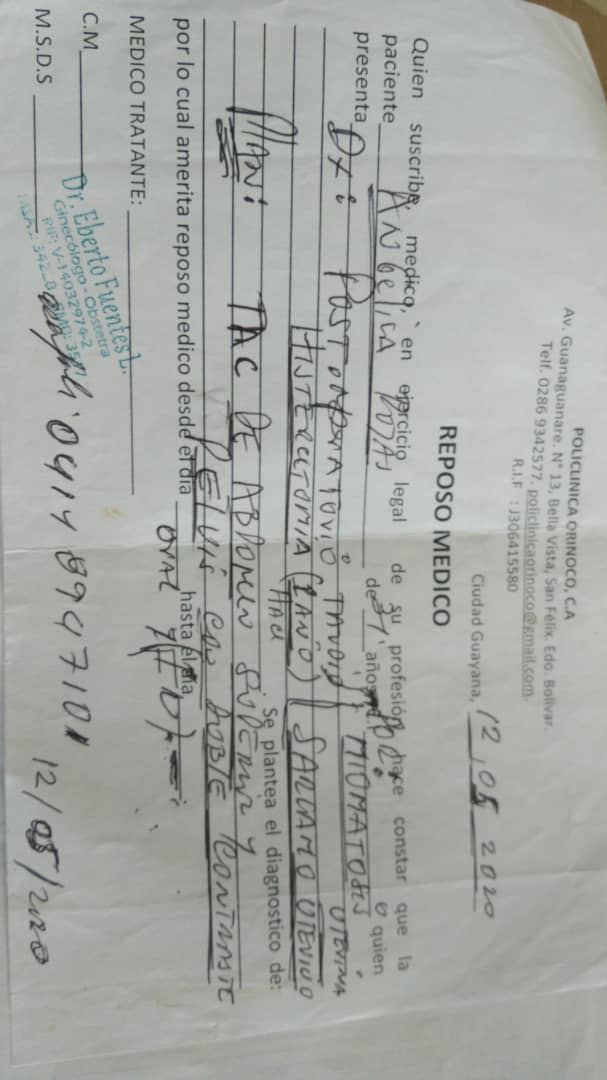 POLICLINICA ORINOCO, C.A
Av. Guanaguanare. N° 13, Bella Vista, San Félix. Edo. Bolívar.
Telf. 0286 9342577. policlinicaorinoco@gmail.com.
R.I.F : J306415580
Ciudad Guayana, 12, 05 2020
REPOSO MEDICO
Quien suscribe, medico, en ejercicio legal de su profesión hace constar que la
paciente ANGELICA de años quien
presenta DX: POST OPERATORIO MIOMATOSIS UTERINA
HISTERECTOMIA ( SARCOMA UTERINO
Se plantea el diagnostico de:
PLAN: TAC DE ABDOMEN SUPERIOR Y
PELVIS CON DOBLE CONTRASTE
por lo cual amerita reposo medico desde el día hasta el día
ORAL Y EV
MEDICO TRATANTE:
C.M
M.S.D.S
Dr. Eberto Fuentes L.
Ginecólogo - Obstetra
RIF: V-14032974-2
0414 8947101 12/05/2020